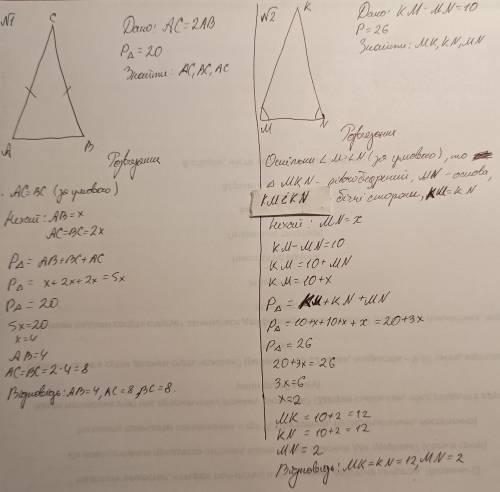 №1
C
A
B
Дано: AC=2AB
P△ = 20
Знайти: AC, BC, AC
Розвязання
AC=BC (за умовою)
Нехай: AB = x
AC=BC= 2x
P△ = AB+BC+AC
P△ = x+2x+2x = 5x
P△ = 20
5x=20
x=4
AB=4
AC=BC= 2·4=8
Відповідь: AB=4, AC = 8, BC=8.
№2
K
M
N
Дано: KM - MN = 10
P = 26
Знайти: MK, KN, MN
Розвязання
Оскільки ∠M=∠N (за умовою), то
△ MKN - рівнобедрений, MN - основа,
KM i KN бічні сторони, KM = KN
Нехай: MN = x
KM - MN = 10
KM = 10 + MN
KM = 10 + x
P△ = KM + KN + MN
P△ = 10+x+10+x + x = 20+3x
P△ = 26
20+3x = 26
3x=6
x=2
MK = 10+2 = 12
KN = 10+2 = 12
MN = 2
Відповідь: MK=KN=12, MN = 2